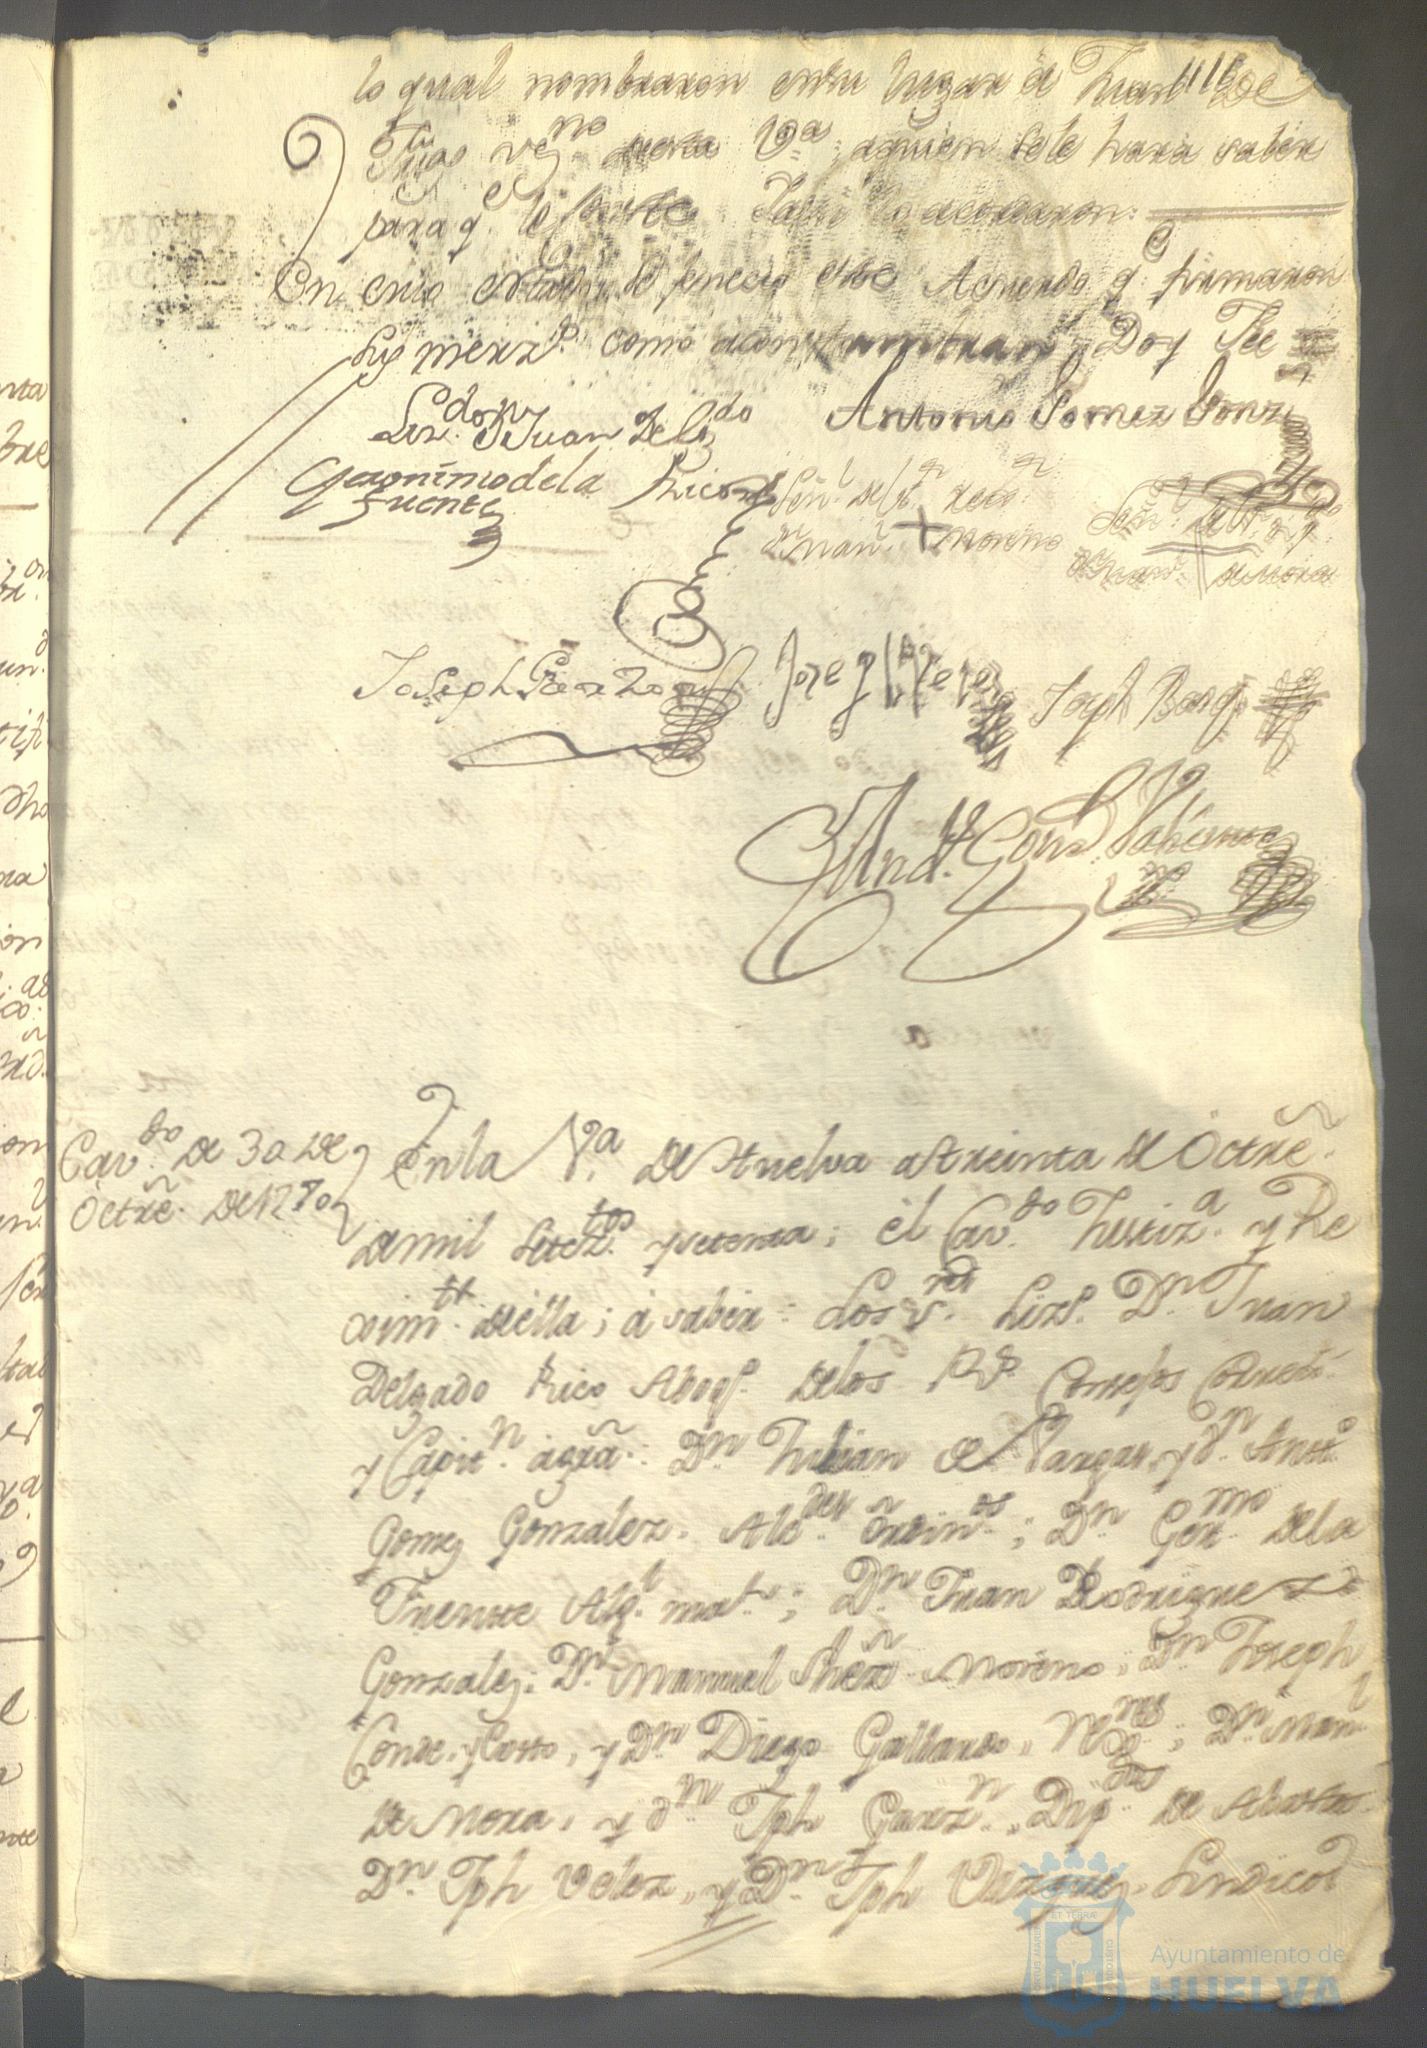 116
lo qual nombraron en su lugar a Juan De
vezno desta Va a quien se le hara saber
para qe lo acordaron
En cuio estado se fenecio este Acuerdo qe firmaron
sus merzs como acostumbran, Doy Fee
Lizdo Dn Juan Delgdo Antonio Gomez Gonz
Geronimo de la Rico
Fuente
señl del Sr rexor
Dn Manl + Moreno
señl del Sr
Dn Manl de Mora
Joseph Garzon Jozeph Velez Joseph Barq
Andt Gonz Valiente
Cavdo de 30 de
Octre de 1770
En la Va de Huelva a treinta de Octre
de mil setezos y setenta; el Cavdo Justiza y Re
ximto de ella; a saber: Los Sres Lizdo Dn Juan
Delgado Rico Abogo de los Rs Consejos Correxr
y Capitn a grã: Dn Julian de Vargas, y dn Antto
Gomez Gonzalez, Alcdes ordinos; Dn Germo de la
Fuente Algl mayr; Dn Juan Rodriguez
Gonzalez; Dn Manuel Moreno, Dn Joseph
Conde y Cotto, y Dn Diego Gallardo, Regres; Dn Manl
de Mora, y dn Jph Garzn, Dipdos de Abastos
Dn Jph Velez, y Dn Jph Sindicos
Ayuntamiento de
HUELVA